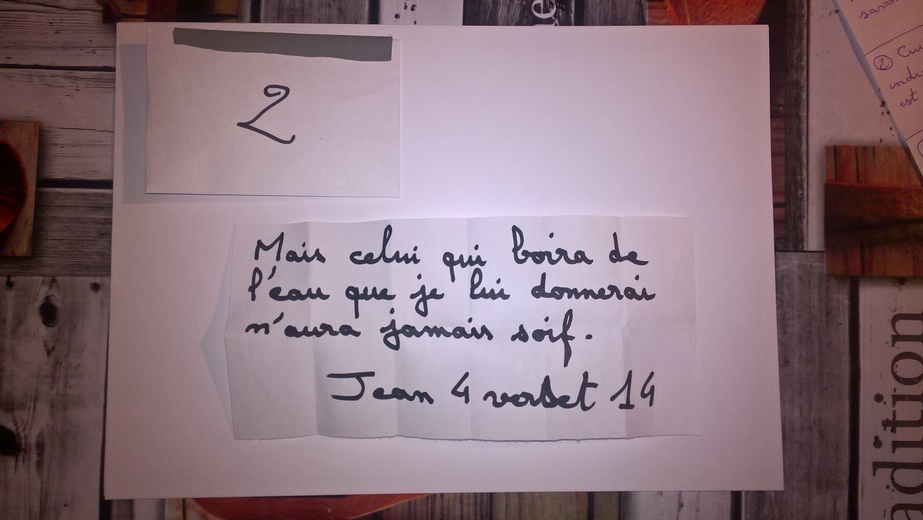 2
Mais celui qui boira de
l'eau que je lui donnerai
n'aura jamais soif.
Jean 4 verset 14
savo
② Cu
indu
est
adition